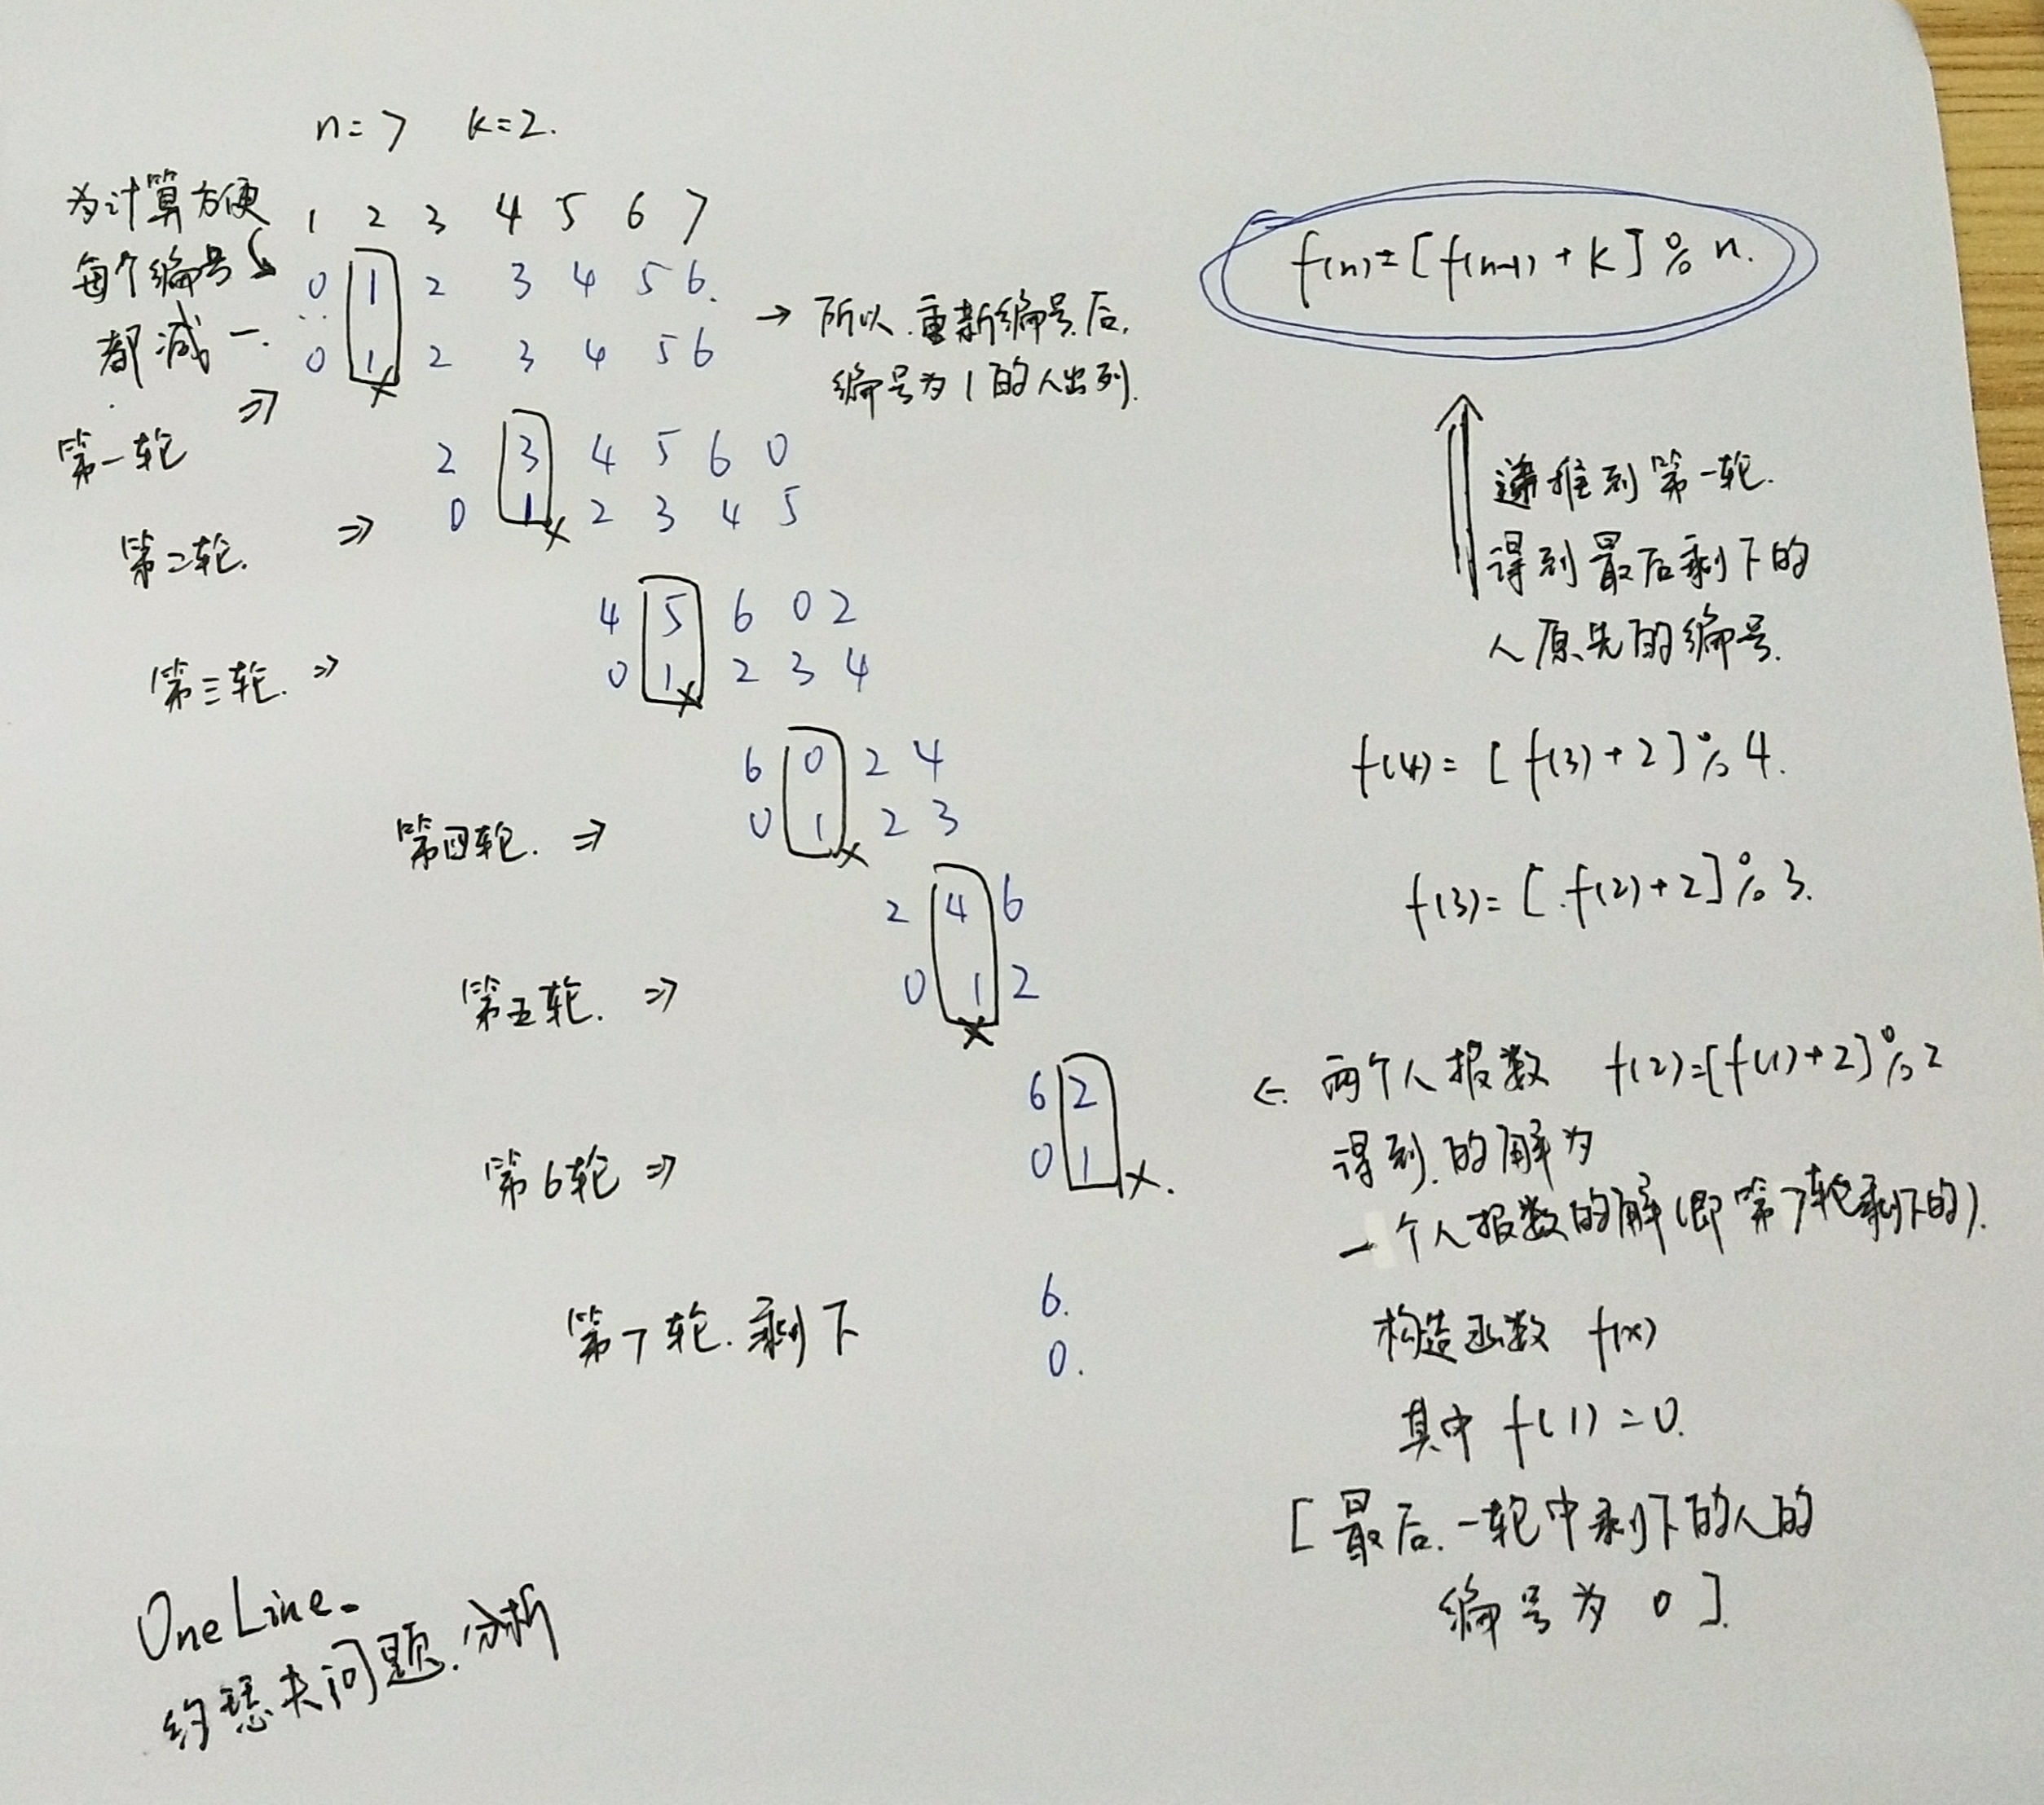 n=7 k=2.
为计算方便
每个编号
都减一.
1 2 3 4 5 6 7
0 1 2 3 4 5 6.
0 1 2 3 4 5 6
→ 所以.重新编号后,
编号为1的人出列.
第一轮 ⇒
2 3 4 5 6 0
0 1 2 3 4 5
第二轮. ⇒
4 5 6 0 2
0 1 2 3 4
第三轮. ⇒
6 0 2 4
0 1 2 3
第四轮. ⇒
2 4 6
0 1 2
第五轮. ⇒
6 2
0 1
第6轮 ⇒
6.
0.
第7轮.剩下
f(n)=[f(n-1)+k]%n.
递推到第一轮.
得到最后剩下的
人原先的编号.
f(4)=[f(3)+2]%4.
f(3)=[f(2)+2]%3.
← 两个人报数 f(2)=[f(1)+2]%2
得到.的解为
一个人报数的解(即第7轮剩下的).
构造函数 f(x)
其中 f(1)=0.
[最后.一轮中剩下的人的
编号为 0].
OneLine.
约瑟夫问题.分析